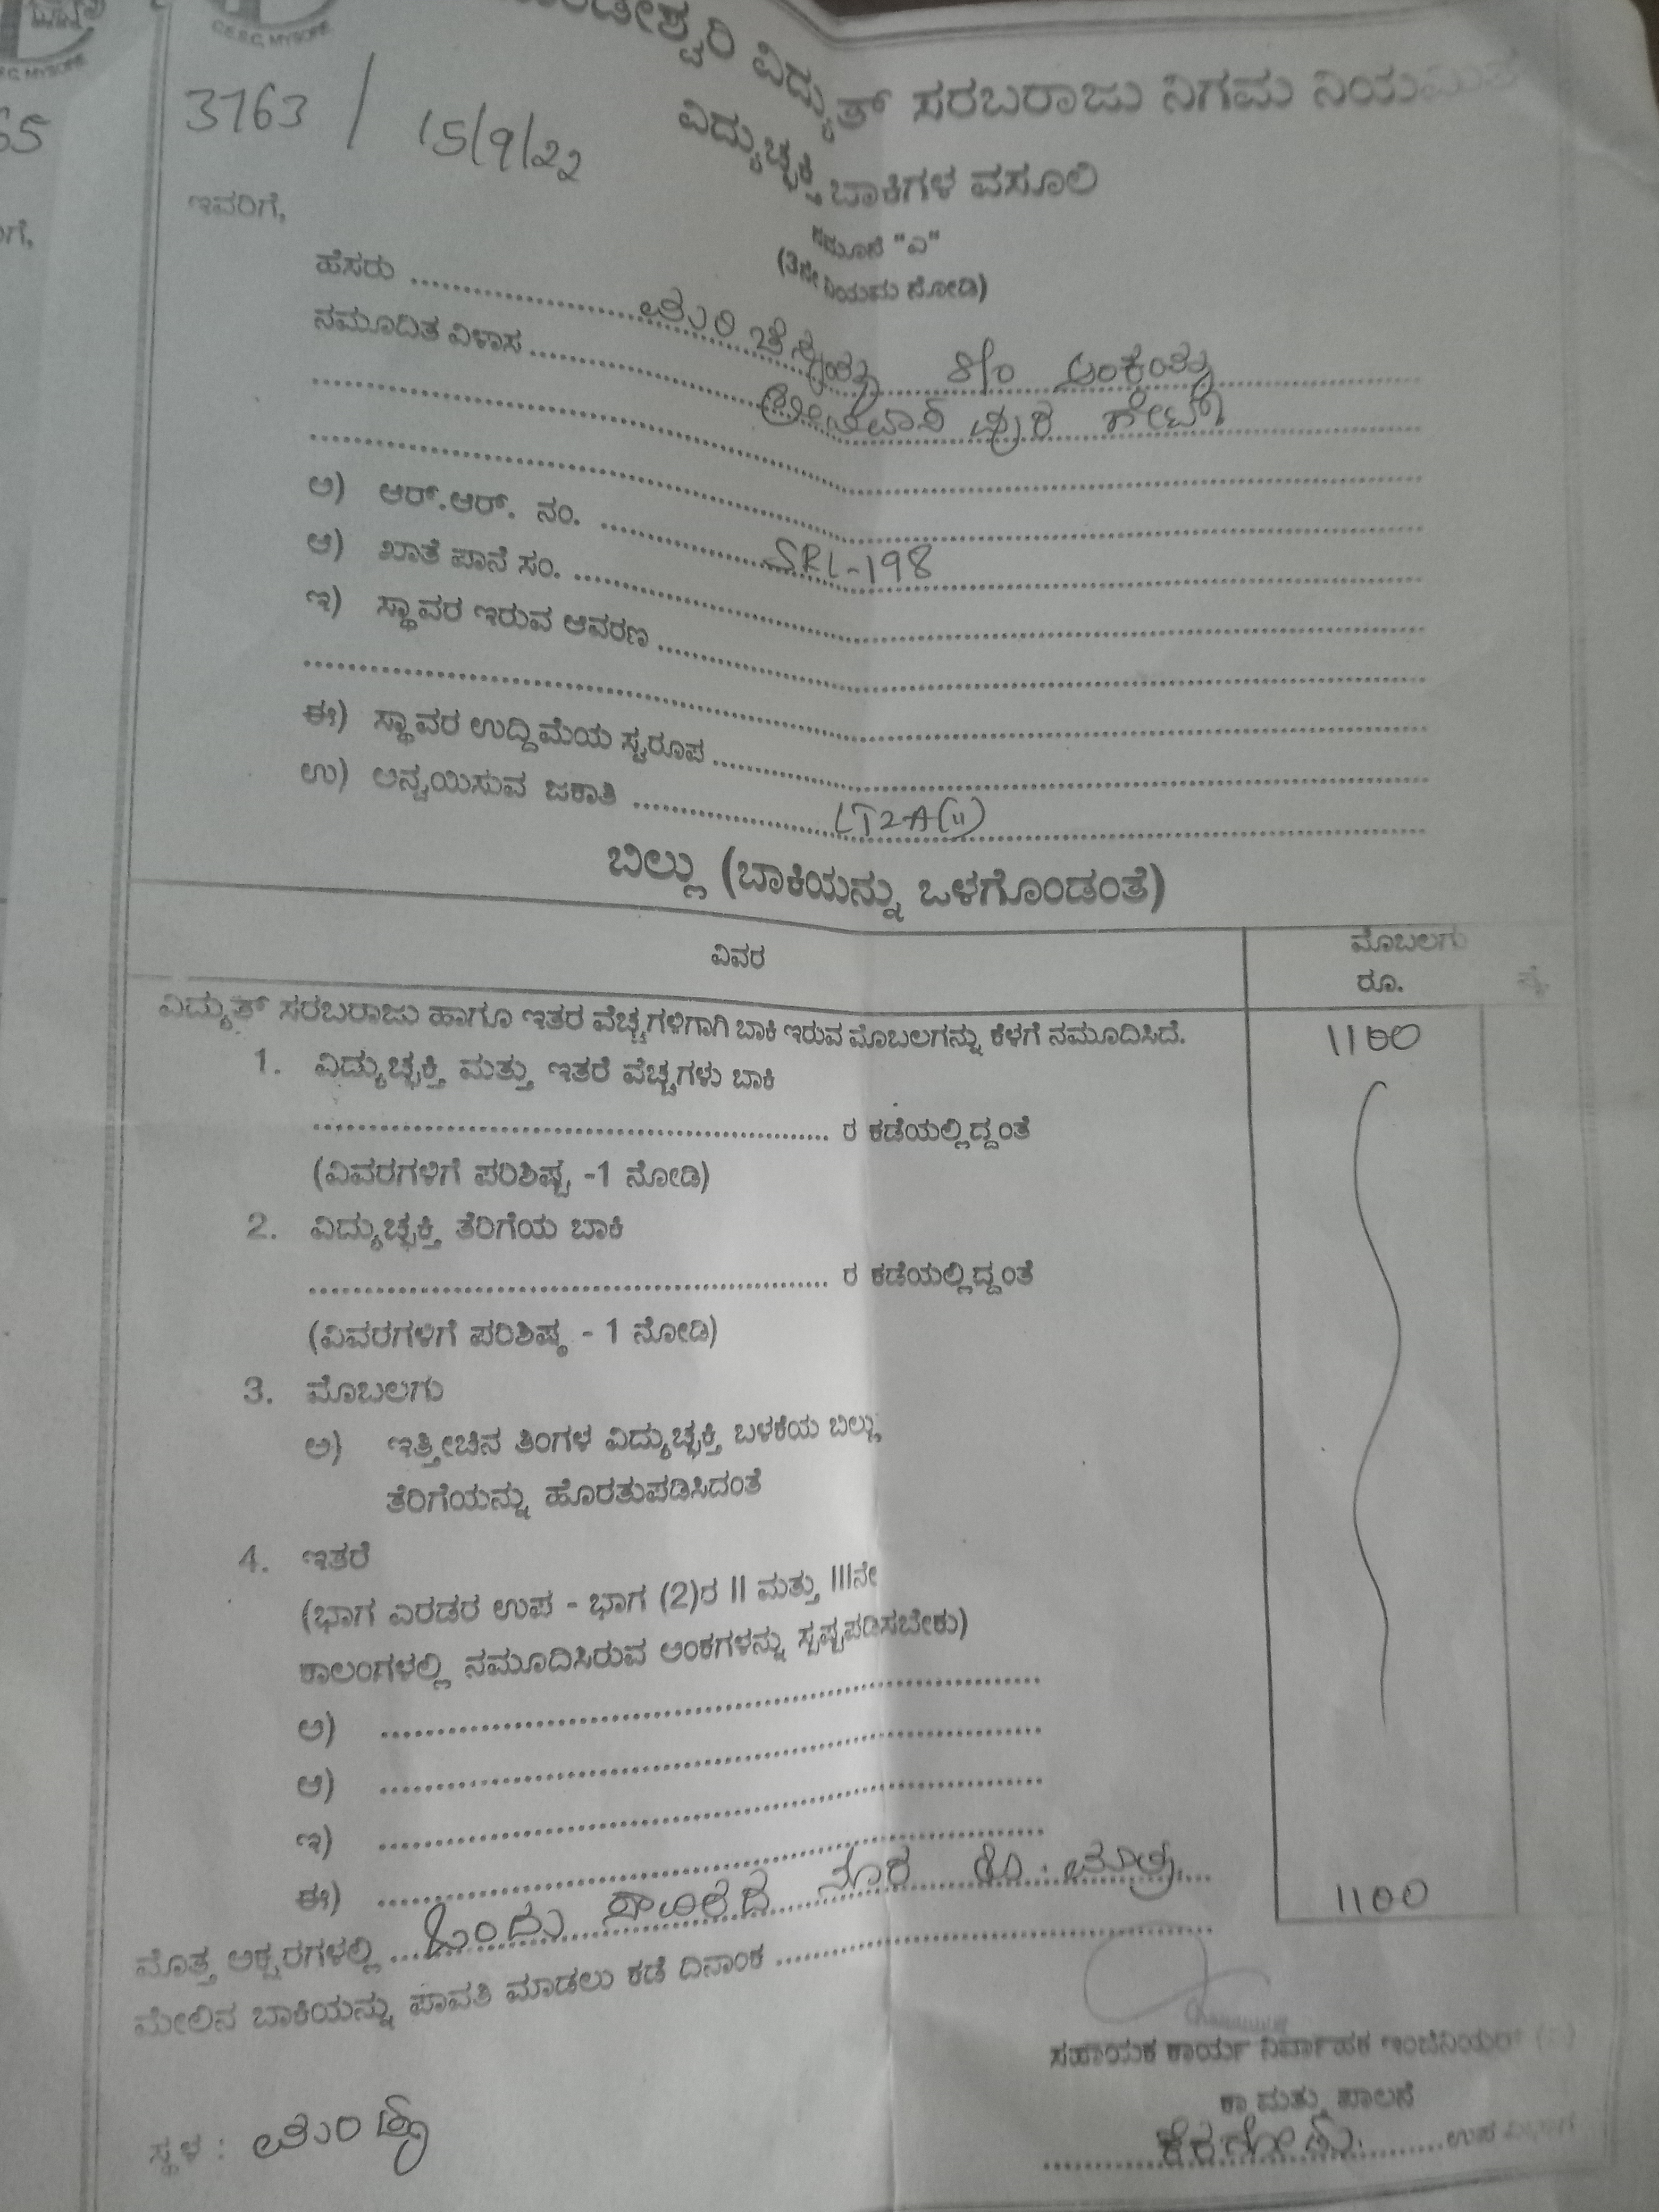 C.E.S.C, MYSORE
ವಿದ್ಯುತ್ ಸರಬರಾಜು ನಿಗಮ
3763 / 15/9/22
ವಿದ್ಯುಚ್ಛಕ್ತಿ ಬಾಕಿಗಳ ವಸೂಲಿ
ನಮೂನೆ "ಎ"
(3ನೇ ನಿಯಮ ನೋಡಿ)
ಇವರಿಗೆ,
ಹೆಸರು ........ S/o
ನಮೂದಿತ ವಿಳಾಸ ........ ಗೇಟ್
ಅ) ಆರ್.ಆರ್. ನಂ. ........ SRL-198
ಆ) ಖಾತೆ ಪಾನೆ ಸಂ. ........
ಇ) ಸ್ಥಾವರ ಇರುವ ಆವರಣ ........
ಈ) ಸ್ಥಾವರ ಉದ್ದಿಮೆಯ ಸ್ವರೂಪ ........
ಉ) ಅನ್ವಯಿಸುವ ಜಕಾತಿ ........ LT2A(ii)
ಬಿಲ್ಲು (ಬಾಕಿಯನ್ನು ಒಳಗೊಂಡಂತೆ)
ವಿವರ ಮೊಬಲಗು
ರೂ. ಪೈ.
ವಿದ್ಯುತ್ ಸರಬರಾಜು ಹಾಗೂ ಇತರ ವೆಚ್ಚಗಳಿಗಾಗಿ ಬಾಕಿ ಇರುವ ಮೊಬಲಗನ್ನು ಕೆಳಗೆ ನಮೂದಿಸಿದೆ. 1100
1. ವಿದ್ಯುಚ್ಛಕ್ತಿ ಮತ್ತು ಇತರೆ ವೆಚ್ಚಗಳು ಬಾಕಿ
........ ರ ಕಡೆಯಲ್ಲಿದ್ದಂತೆ
(ವಿವರಗಳಿಗೆ ಪರಿಶಿಷ್ಟ -1 ನೋಡಿ)
2. ವಿದ್ಯುಚ್ಛಕ್ತಿ ತೆರಿಗೆಯ ಬಾಕಿ
........ ರ ಕಡೆಯಲ್ಲಿದ್ದಂತೆ
(ವಿವರಗಳಿಗೆ ಪರಿಶಿಷ್ಠ - 1 ನೋಡಿ)
3. ಮೊಬಲಗು
ಅ) ಇತ್ತೀಚಿನ ತಿಂಗಳ ವಿದ್ಯುಚ್ಛಕ್ತಿ ಬಳಕೆಯ ಬಿಲ್ಲು
ತೆರಿಗೆಯನ್ನು ಹೊರತುಪಡಿಸಿದಂತೆ
4. ಇತರೆ
(ಭಾಗ ಎರಡರ ಉಪ - ಭಾಗ (2)ರ II ಮತ್ತು IIIನೇ
ಕಾಲಂಗಳಲ್ಲಿ ನಮೂದಿಸಿರುವ ಅಂಕಗಳನ್ನು ಸ್ಪಷ್ಟಪಡಿಸಬೇಕು)
ಅ) ........
ಆ) ........
ಇ) ........
ಈ) ........
1100
ಮೊತ್ತ ಅಕ್ಷರಗಳಲ್ಲಿ .... ಒಂದು ಸಾವಿರದ ನೂರ ರೂ. ಮಾತ್ರ
ಮೇಲಿನ ಬಾಕಿಯನ್ನು ಪಾವತಿ ಮಾಡಲು ಕಡೆ ದಿನಾಂಕ ........
ಸಹಾಯಕ ಕಾರ್ಯ ನಿರ್ವಾಹಕ ಇಂಜಿನಿಯರ್
ಕಾ ಮತ್ತು ಪಾಲನೆ
ಸ್ಥಳ : ಮಂಡ್ಯ
ಕೆರಗೋಡು ........ ಉಪ ವಿಭಾಗ